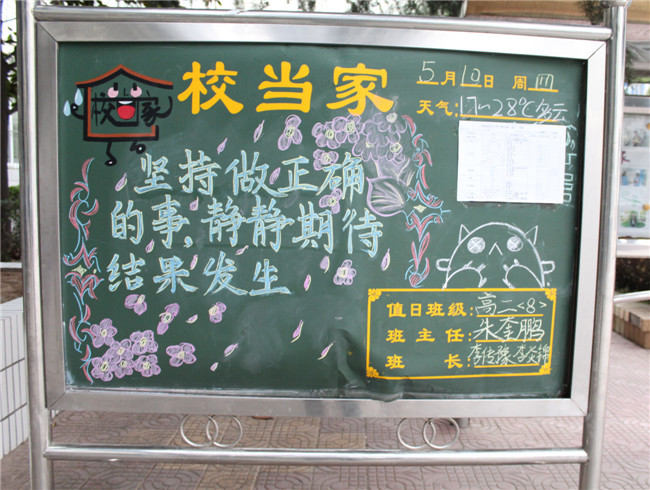 校当家
校当家
5月10日 周四
天气: 17~28℃ 多云
坚持做正确
的事，静静期待
结果发生
值日班级: 高二<8>
班主任: 朱奎鹏
班长: